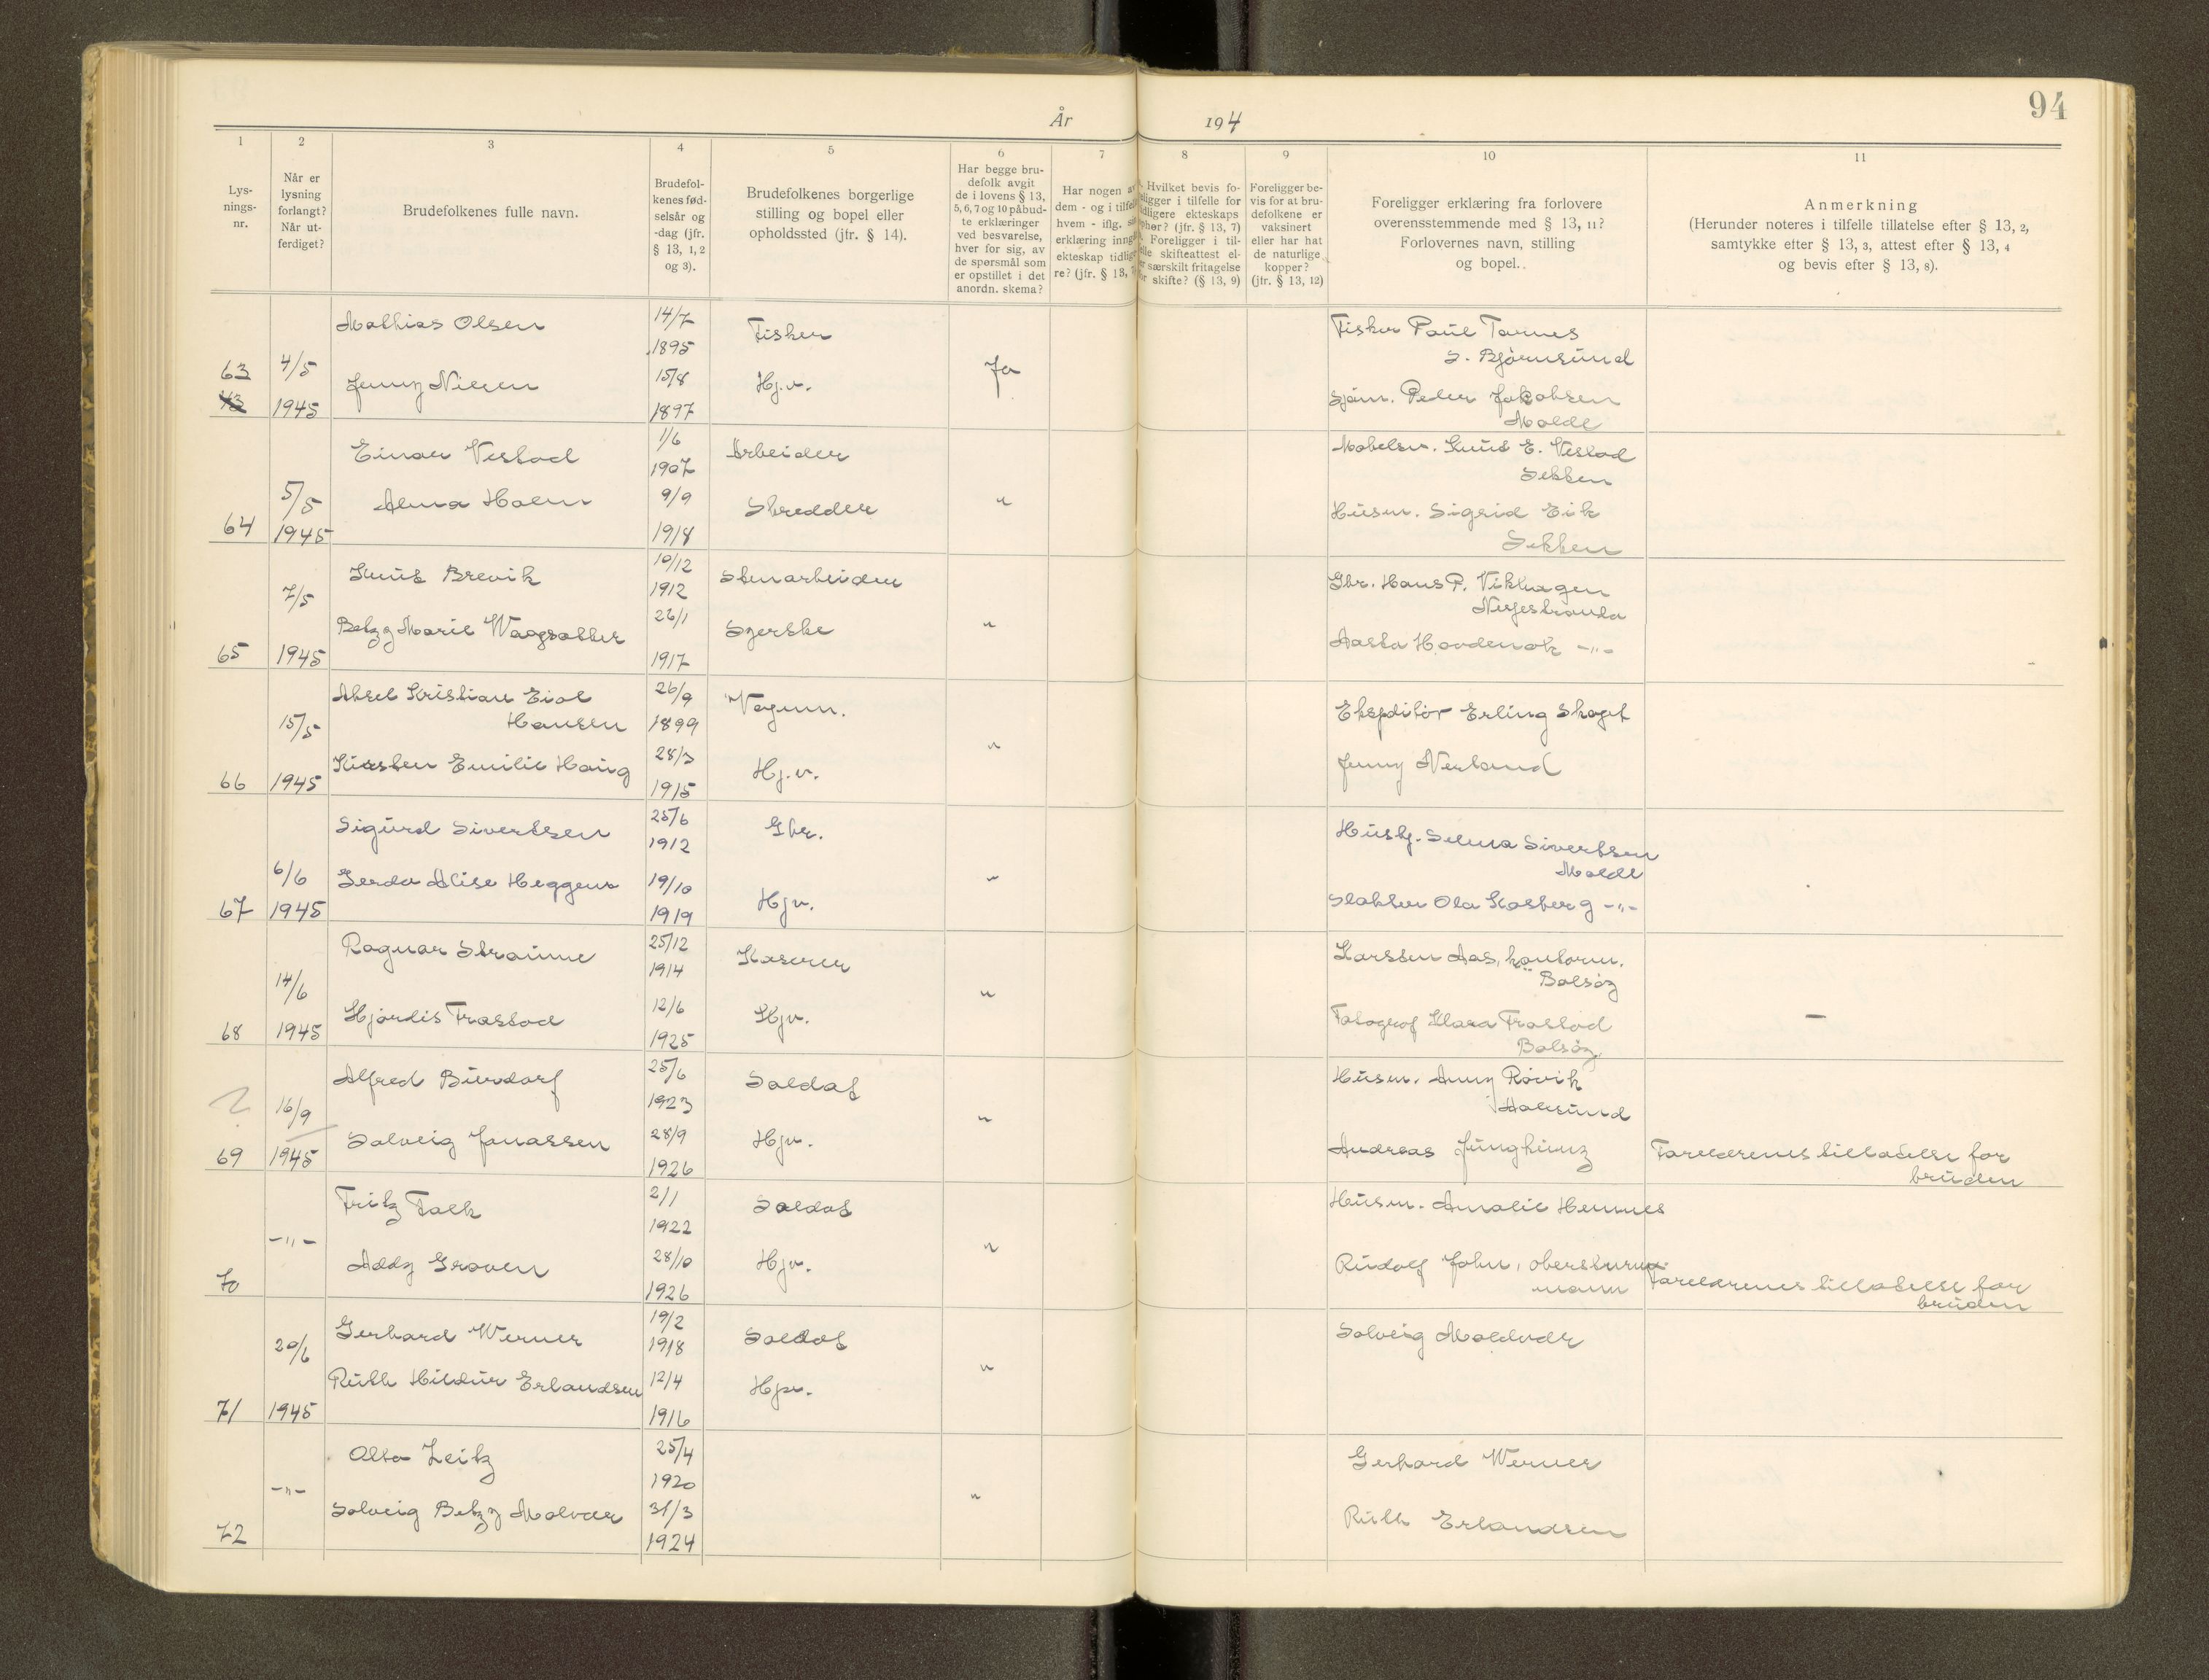 94
År 194
1 2 3 4 5 6 7 8 9 10 11
Lys-
nings-
nr.
Når er
lysning
forlangt?
Når ut-
ferdiget?
Brudefolkenes fulle navn.
Brudefol-
kenes fød-
selsår og
-dag (jfr.
§ 13, 1, 2
og 3).
Brudefolkenes borgerlige
stilling og bopel eller
opholdssted (jfr. § 14).
Har begge bru-
defolk avgit
de i lovens § 13,
5, 6, 7 og 10 påbud-
te erklæringer
ved besvarelse,
hver for sig, av
de spørsmål som
er opstillet i det
anordn. skema?
Har nogen
dem - og i
hvem - iflg.
erklæring
ekteskap
re? (jfr. § 13,
Hvilket bevis fo-
religger i tilfelle for
ekteskaps
(jfr. § 13, 7)
Foreligger i til-
skifteattest el-
særskilt fritagelse
skifte? (§ 13, 9)
Foreligger be-
vis for at bru-
defolkene er
vaksinert
eller har hat
de naturlige
kopper?
(jfr. § 13, 12)
Foreligger erklæring fra forlovere
overensstemmende med § 13, 11?
Forlovernes navn, stilling
og bopel.
Anmerkning
(Herunder noteres i tilfelle tillatelse efter § 13, 2,
samtykke efter § 13, 3, attest efter § 13, 4
og bevis efter § 13, 8).
63
4/5
1945
Mathias Olsen
14/7
1895
Fisker
Jenny Nilsen
15/8
1897
Hj.v.
Ja
Fisker Paul Tornes
S. Bjørnsund
Sjøm. Peder Jakobsen
Molde
64
5/5
1945
Einar Vestad
1/6
1907
Arbeider
Alma Holm
9/9
1918
Skredder
"
Møbelsn. Knut E. Vestad
Sekken
Husm. Sigrid Eik
Sekken
65
7/5
1945
Knut Brevik
10/12
1912
Stenarbeider
Betzy Marie Waagsæther
26/1
1917
Syerske
"
Gbr. Hans P. Vikhagen
Nesjestranda
Aasta Hovdenak -"-
66
15/5
1945
Aksel Kristian Eidt
Hansen
26/9
1899
Vognm.
Kirsten Emilie Haug
28/3
1915
Hj.v.
"
Ekspeditør Erling Skaget
Jenny Nerland
67
6/6
1945
Sigurd Sivertsen
25/6
1912
Gbr.
Gerda Alise Heggem
19/10
1919
Hjv.
"
Hushj. Selma Sivertsen
Molde
Slakter Ola Kosberg -"-
68
14/6
1945
Ragnar Straume
25/12
1914
Kaserer
Hjørdis Frostad
12/6
1925
Hjv.
"
Karsten Aas, kontorm.
Bolsøy
Fotograf Klara Frostad
Bolsøy
-
?
69
16/9
1945
Alfred Burdorf
25/6
1923
Soldat
Solveig Jonassen
28/9
1926
Hjv.
"
Husm. Anny Røvik
Aalesund
Andreas Junghünz
Foreldrenes tillatelse for
bruden
70
-"-
Fritz Falk
2/1
1922
Soldat
Addy Groven
28/10
1926
Hjv.
"
Husm. Amalie Hemnes
Rudolf John, obersturm-
mann
Foreldrenes tillatelse for
bruden
71
20/6
1945
Gerhard Werner
19/2
1918
Soldat
Ruth Hildur Erlandsen
12/4
1916
Hjv.
"
Solveig Moldvær
72
-"-
Otto Zeitz
25/4
1920
Solveig Betzy Molvær
31/3
1924
"
Gerhard Werner
Ruth Erlandsen